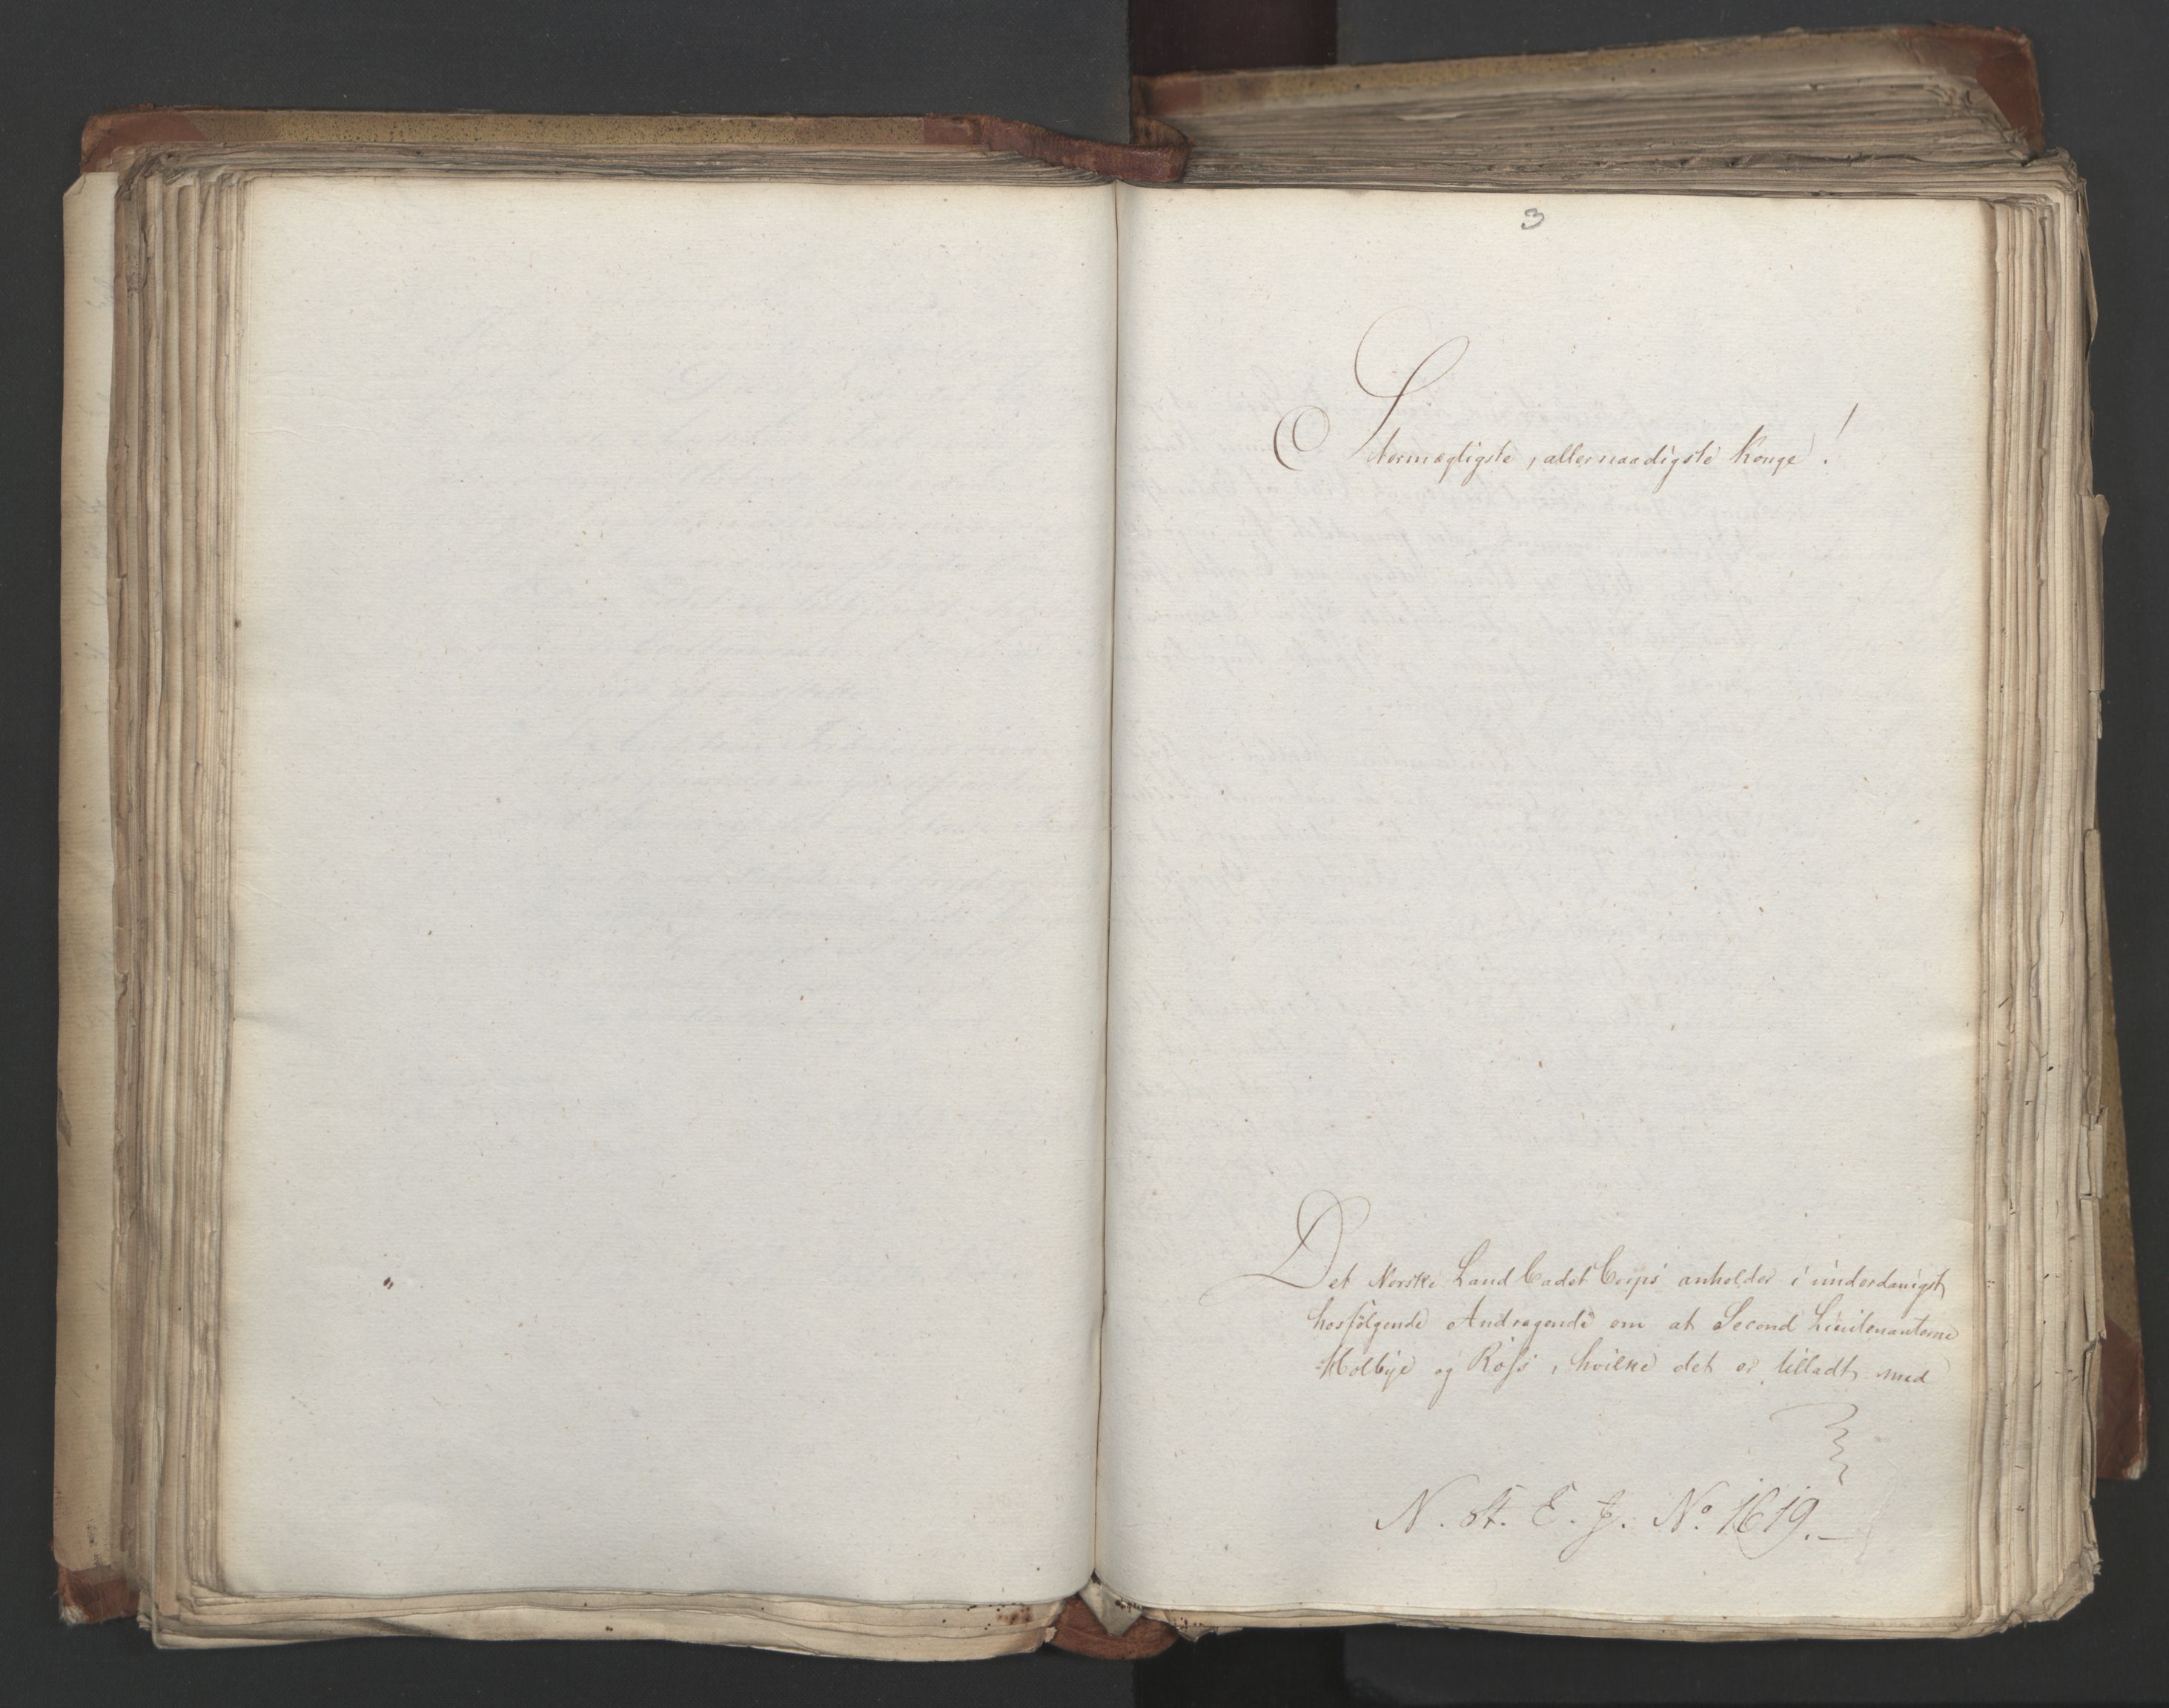 3
Stormægtigste, allernaadigste Konge!
Det Norske Land Cadet Corps anholder i underdanigst
hosfølgende Andragende om at Second Lieutenanterne
Holbye og Ross, hvilke det er tilladt med
N. St. E. J. No 1619.